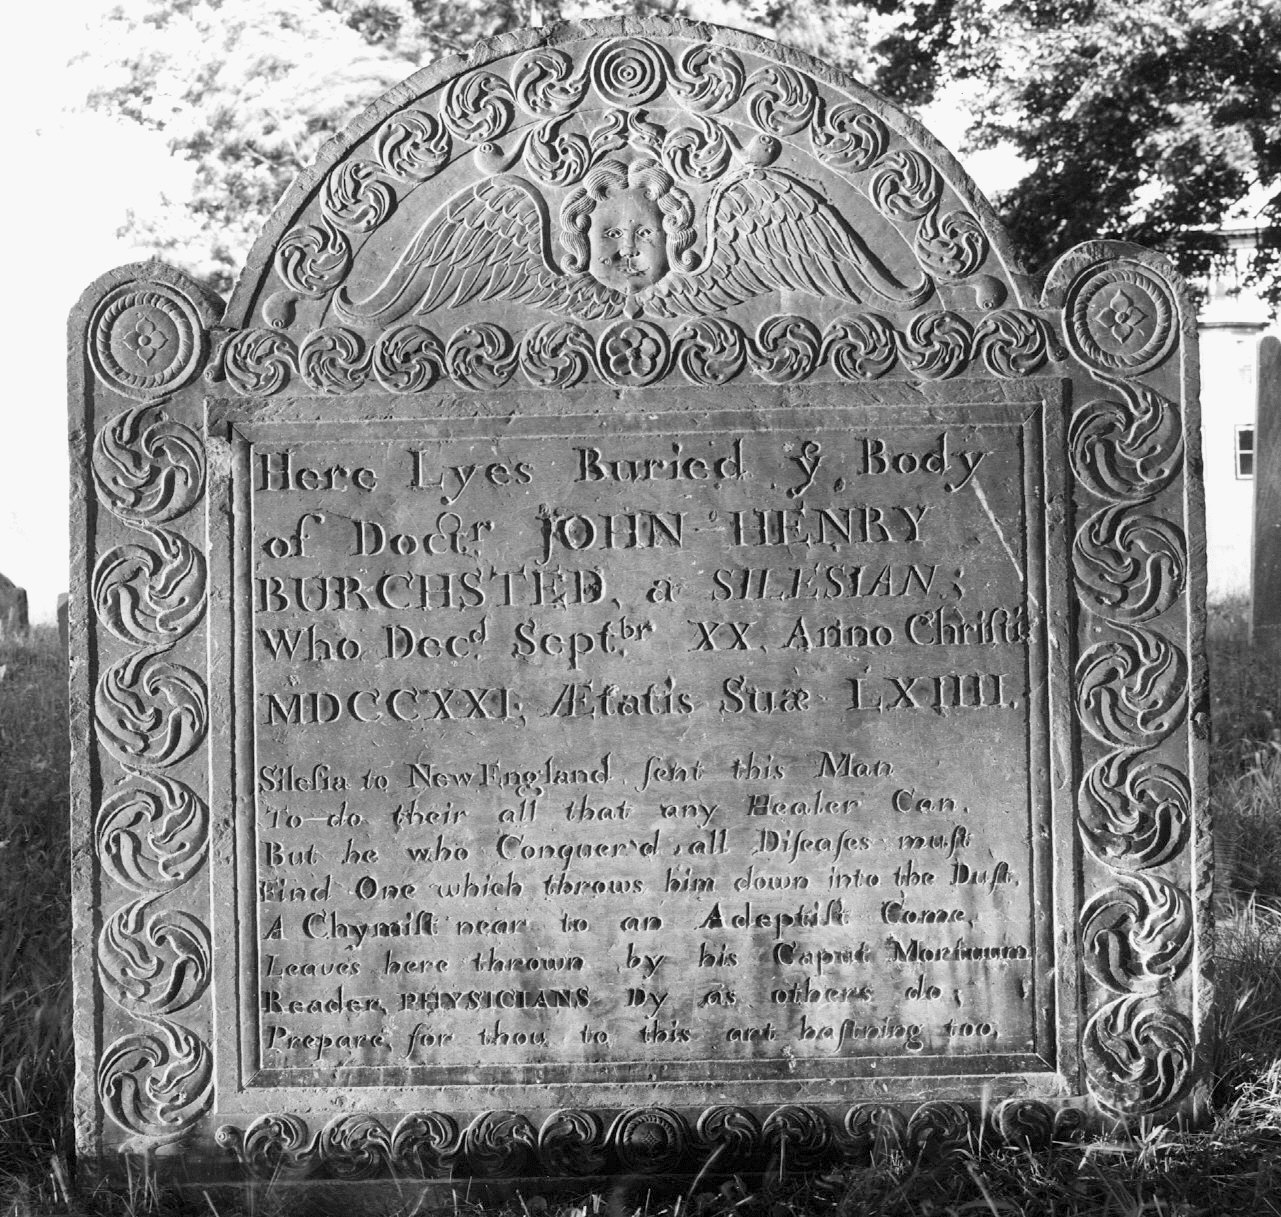 Here Lyes Buried yͤ Body
of Docͭr JOHN-HENRY
BURCHSTED, a SILESIAN,
Who Decͩ Sepͭbr XX, Anno Chriſti
MDCCXXI, Ætatis Suæ LXIIII.
Sileſia to New England ſent this Man
To-do their all that any Healer Can,
But he who Conquer'd all Diſeaſes muſt
Find One which throws him down into the Duſt,
A Chymiſt near to an Adeptiſt Come,
Leaves here thrown by his Caput Mortuum
Reader, PHYSICIANS Dy as others do,
Prepare, for thou to this art haſtning too,